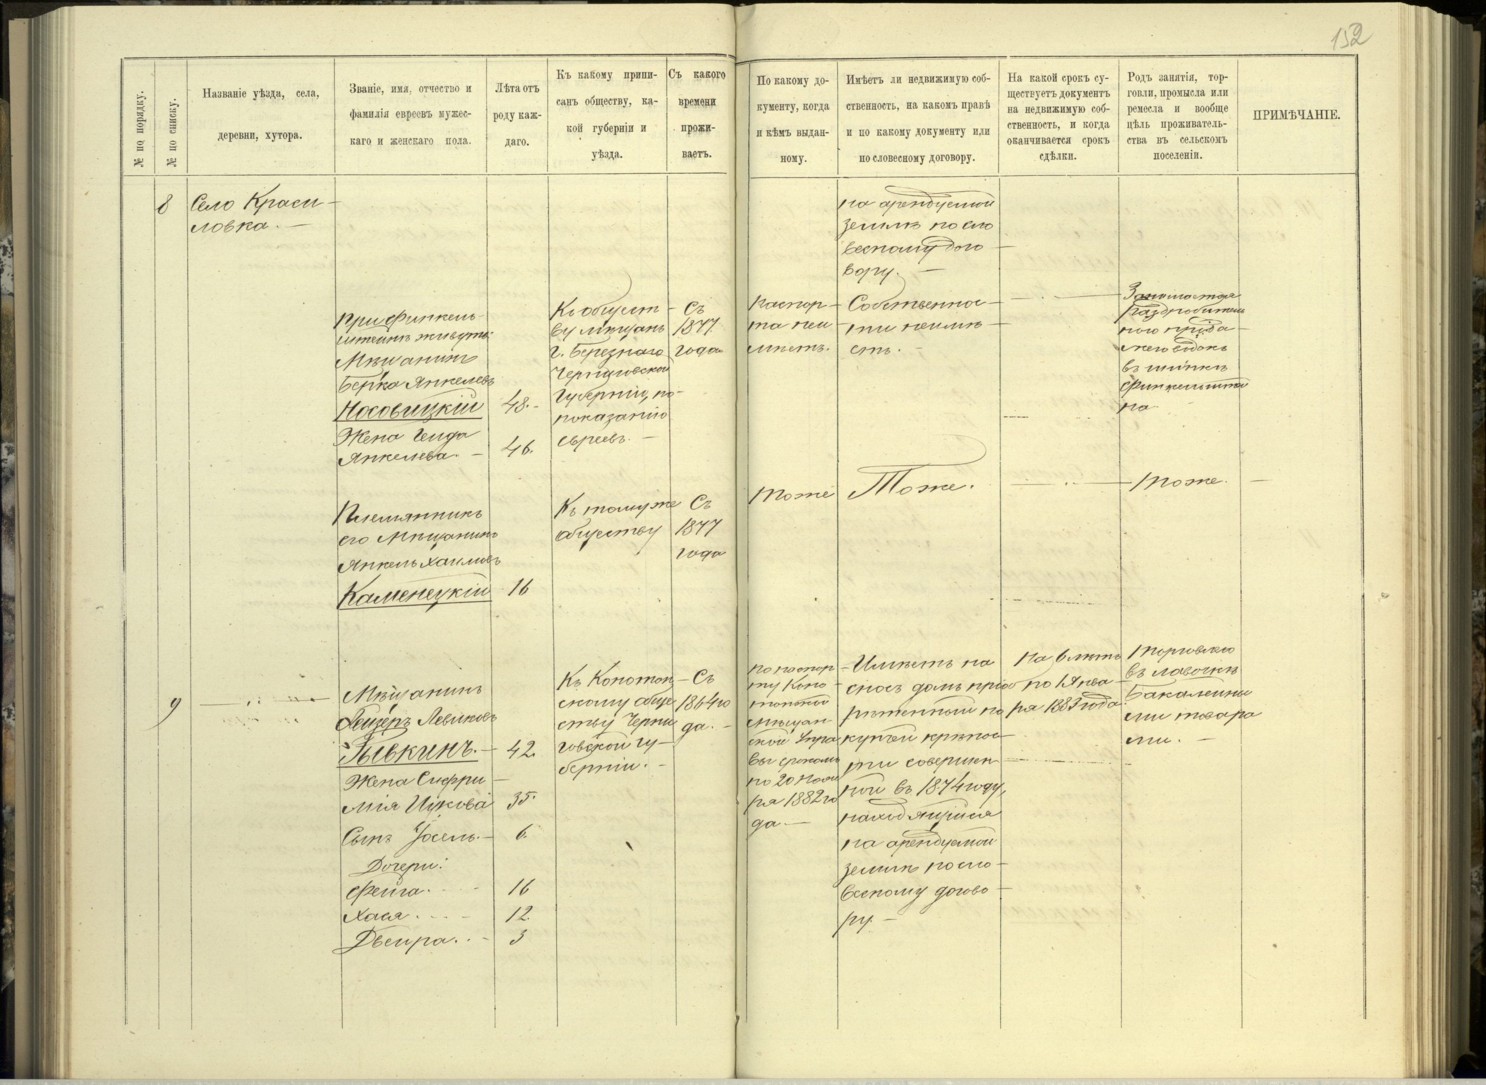 152
№ по порядку.
№ по списку.
Названіе уѣзда, села,
деревни, хутора.
Званіе, имя, отчество и
фамилія евреевъ мужес-
каго и женскаго пола.
Лѣта отъ
роду каж-
даго.
Къ какому припи-
санъ обществу, ка-
кой губерніи и
уѣзда.
Съ какого
времени
прожи-
ваетъ.
По какому до-
кументу, когда
и кѣмъ выдан-
ному.
Имѣетъ ли недвижимую соб-
ственность, на какомъ правѣ
и по какому документу или
по словесному договору.
На какой срокъ су-
ществуетъ документъ
на недвижимую соб-
ственность, и когда
оканчивается срокъ
сдѣлки.
Родъ занятія, тор-
говли, промысла или
ремесла и вообще
цѣль проживатель-
ства въ сельском
поселеніи.
ПРИМѢЧАНІЕ.
8
Село Краси-
ловка.
на арендуемой
землѣ по сло
весному дого-
вору.
При Финкель-
штейнѣ живутъ
Мѣщанинъ
Берка Янкелевъ
Носовицкій
48.
Жена
Янкелева.
46.
Къ общест-
ву мѣщанъ
г. Березнаго
Черниговской
Губерніи, по-
показанію
евреевъ.
Съ
1877
года
Паспор-
та неи
мѣетъ.
Собственнос-
ти неимѣ-
етъ.
Занимается
Раздробитель
ною прода-
жею водокъ
въ шинкѣ
Финкельштей
на
Племянникъ
его Мѣщанинъ
Янкель Хаимовъ
Каменецкій
16
Къ томуже
обществу
Съ
1877
года
Тоже
Тоже.
Тоже.
9
Мѣщанинъ
Лейзеръ Левиковъ
Рывкинъ.
42.
Жена
Ицкова
35.
Сынъ Іосель.
6.
Дочери:
Фейга.
16
Хася.
12.
Двейра.
3
Къ Конотоп-
скому обще
ству Черни
говской гу-
берніи.
Съ
1864 го
да.
По паспор-
ту Коно-
топской
Мѣщан-
ской Упра
вы срокомъ
по 20 Нояб
ря 1882 го
да
Имѣетъ на
сносъ домъ прiоб
рѣтенный по
купчей крѣпос-
ти совершен-
ной въ 1874 году,
находящійся
на арендуемой
землѣ по сло-
весному догово-
ру.
На 6 лѣтъ
по 1 Янва-
ря 1883 года.
Торговлею
въ лавочкѣ
Бакалейны
ми товара
ми.